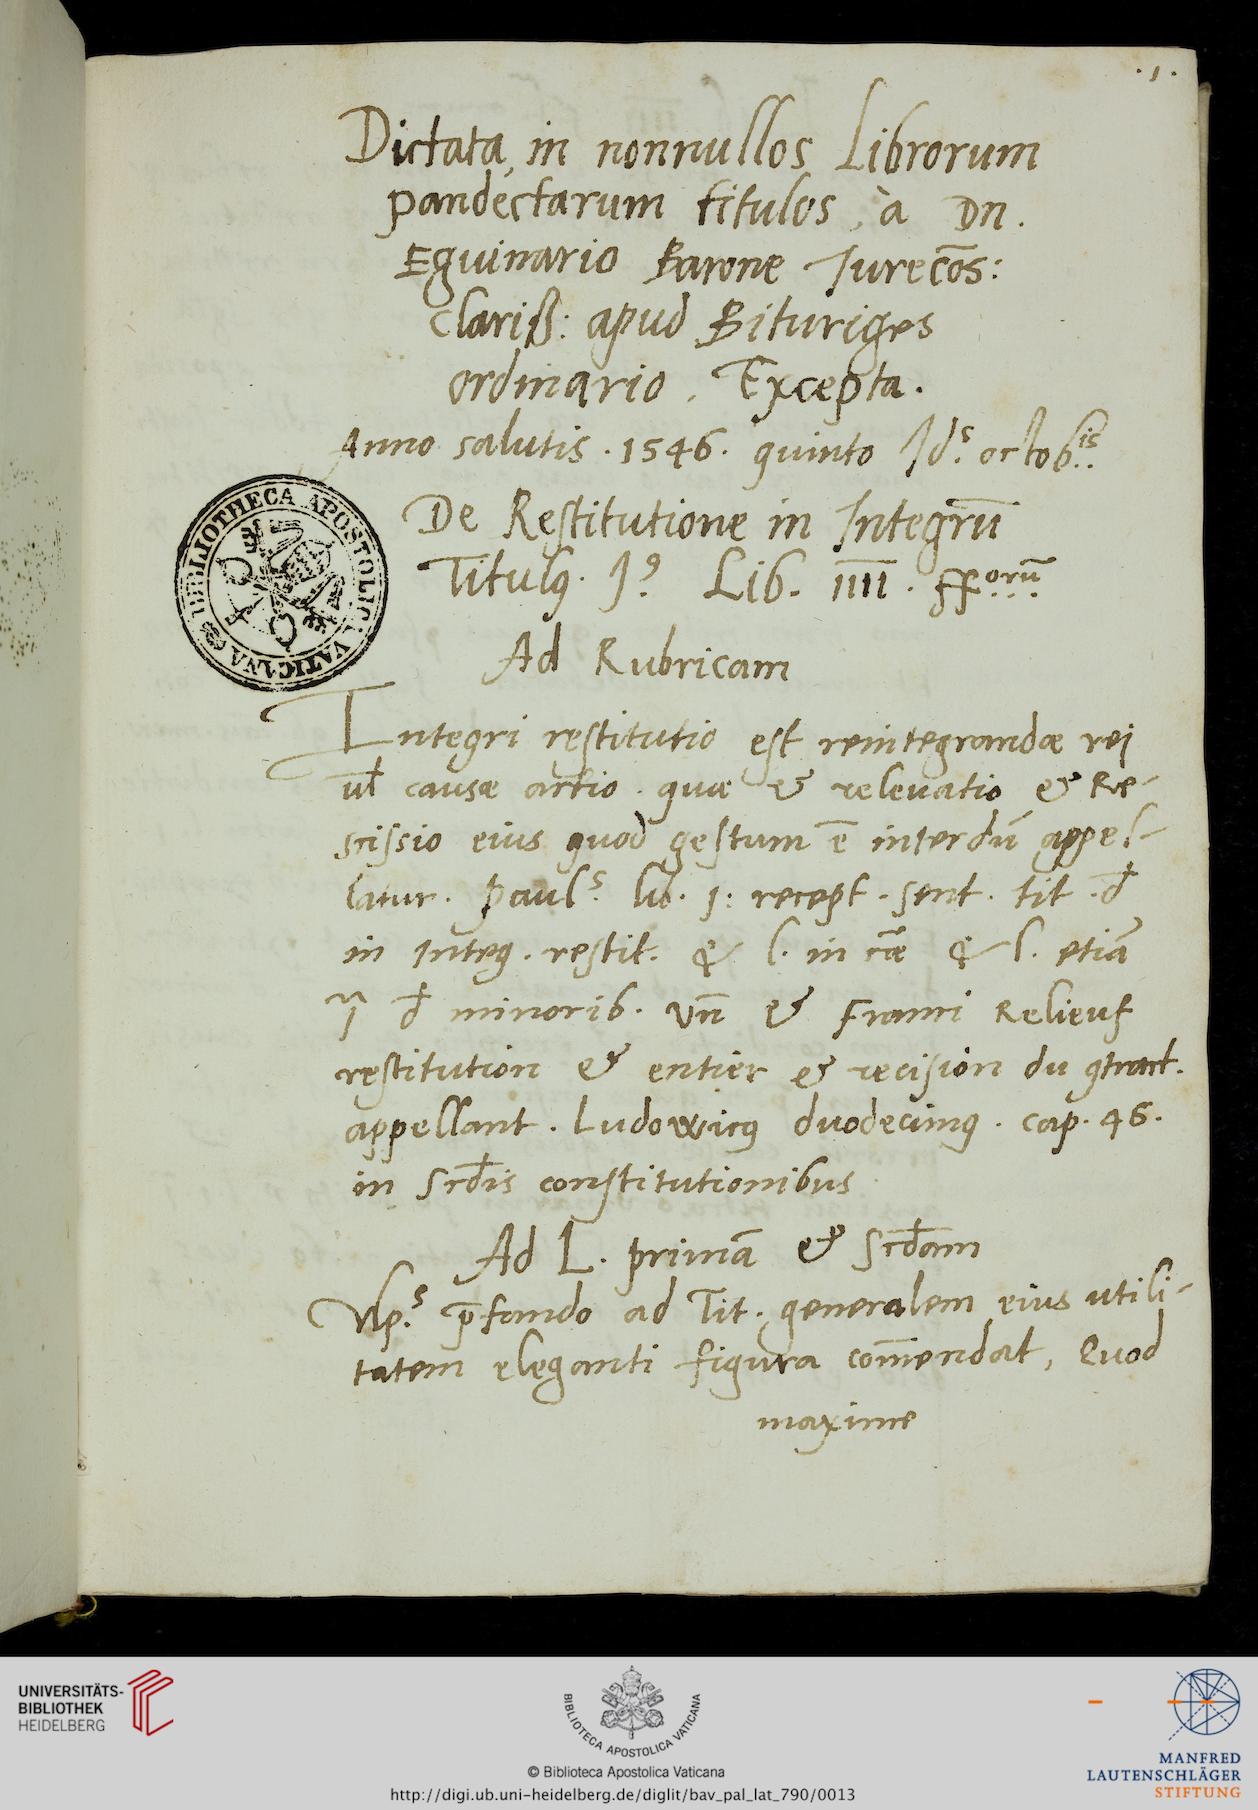 .1.
Dictata in nonnullos Librorum
pandectarum titulos, à Dn.
Eguinario Barone Jurecõs:
clariß: apud Bituriges
ordinario. Excepta.
Anno salutis. 1546. quinto Jdˢ. octobⁱˢ.
De Restitutione in Integrū
Titulꝰ. Jꝰ. Lib. IIII. ff.ᵒʳᵘ̄
Ad Rubricam
Integri restitutio est reintegrandæ rei
ul̄ causæ actio. quæ & releuatio & Re-
scissio eius quod gestum ē interdū appel-
latur. Paulˢ. lib. 1: recept. sent. tit. đ
in Integ. restit. & l. in cā & l. etiā
đ minorib. Vñ & Franci Relieuf
restitution & entier & recision du ꝯtract.
appellant. Ludowicꝰ duodecimꝰ. cap. 46.
in scđis constitutionibus
Ad L. primā & scđam
Vlp.ˢ p̄fando ad Tit. generalem eius utili-
tatem eleganti figura com̄endat, Quod
maxime
BIBLIOTHECA APOSTOLICA VATICANA
UNIVERSITÄTS-
BIBLIOTHEK
HEIDELBERG
BIBLIOTECA APOSTOLICA VATICANA
© Biblioteca Apostolica Vaticana
http://digi.ub.uni-heidelberg.de/diglit/bav_pal_lat_790/0013
MANFRED
LAUTENSCHLÄGER
STIFTUNG